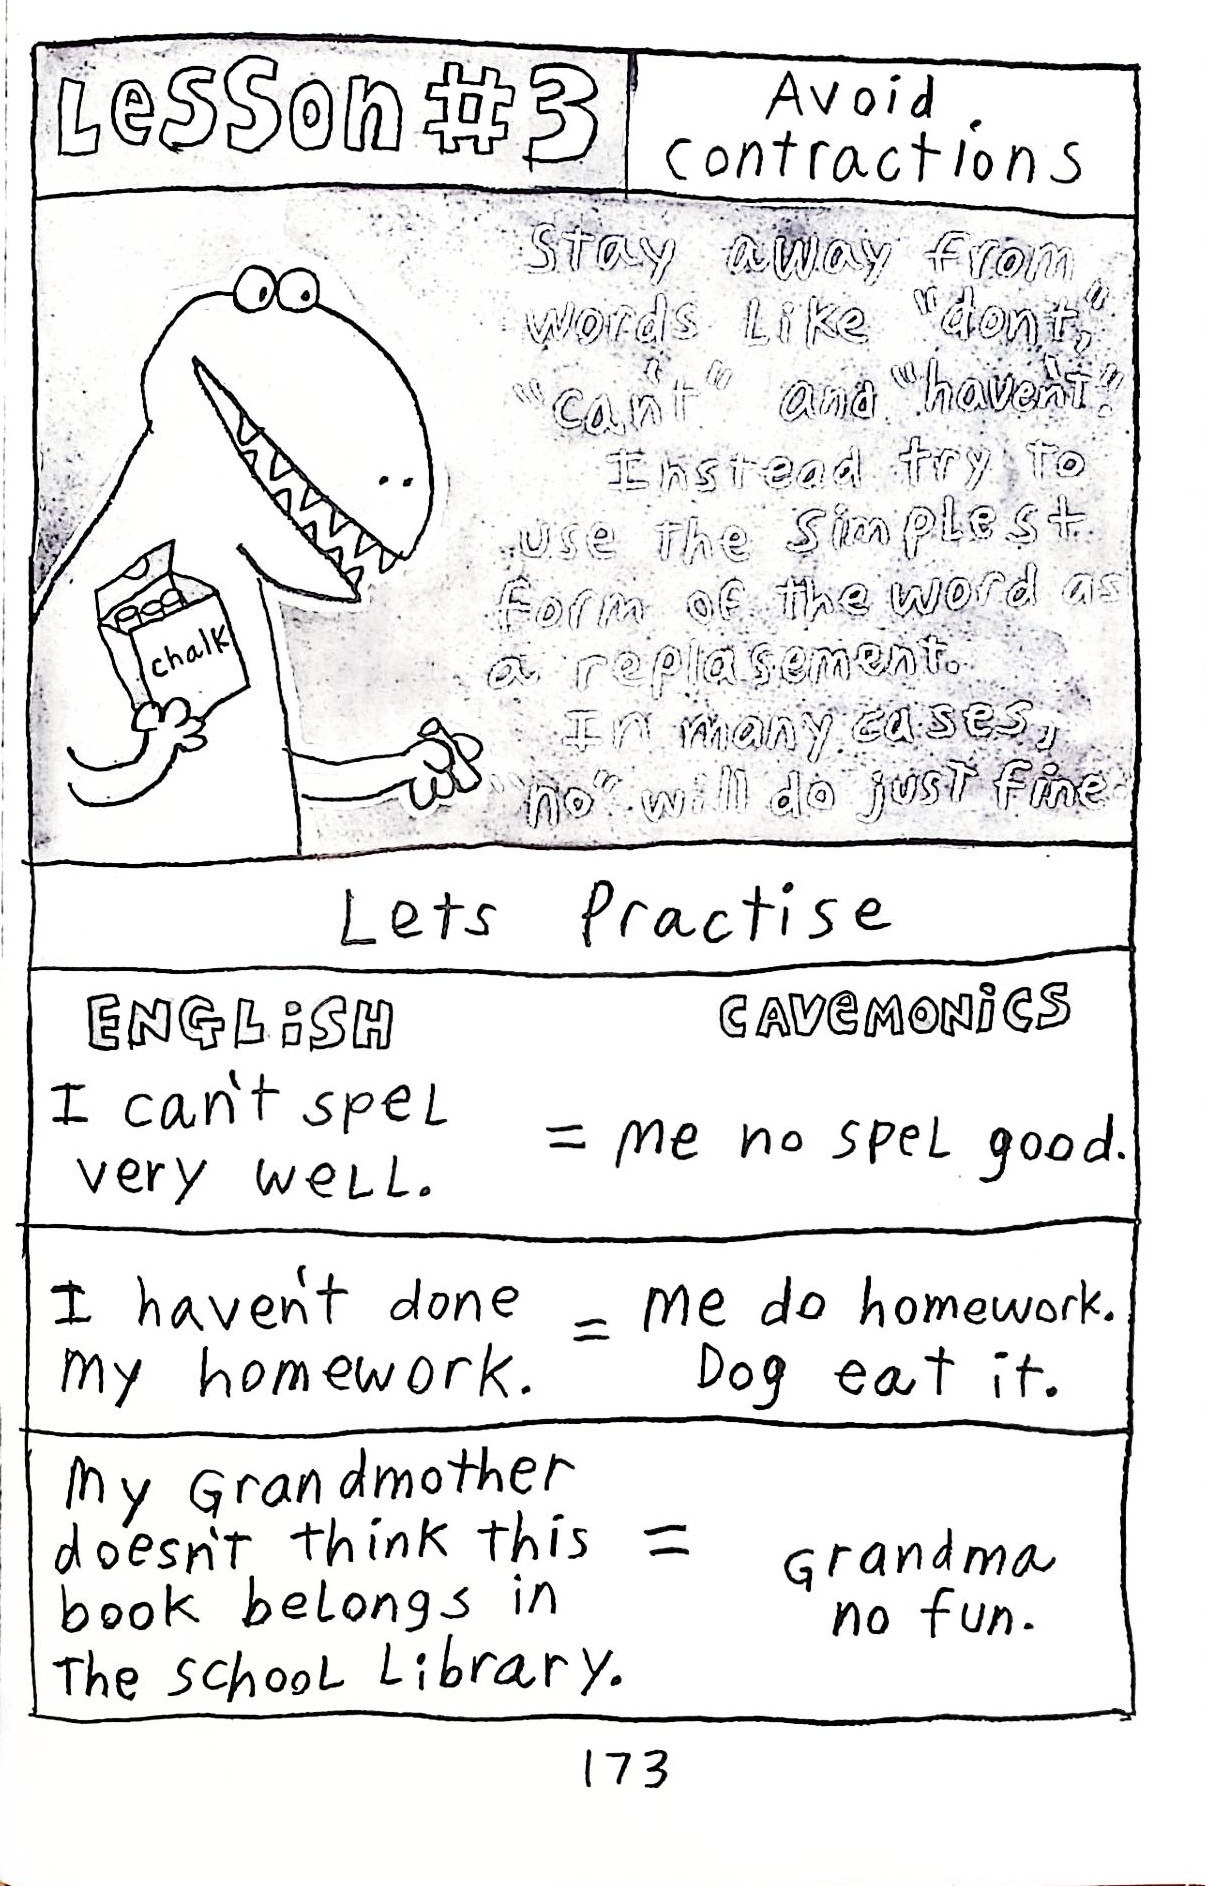 Lesson #3
Avoid
contractions
Stay away from
words like "dont,"
"can't" and "haven't."
Instead try to
use the simplest
form of the word as
a replasement.
In many cases,
"no" will do just fine.
chalk
Lets Practise
ENGLiSH
CAVEMONiCS
I can't spel
very well.
= me no spel good.
I haven't done
my homework.
= me do homework.
Dog eat it.
My Grandmother
doesn't think this
book belongs in
The school Library.
=
Grandma
no fun.
173